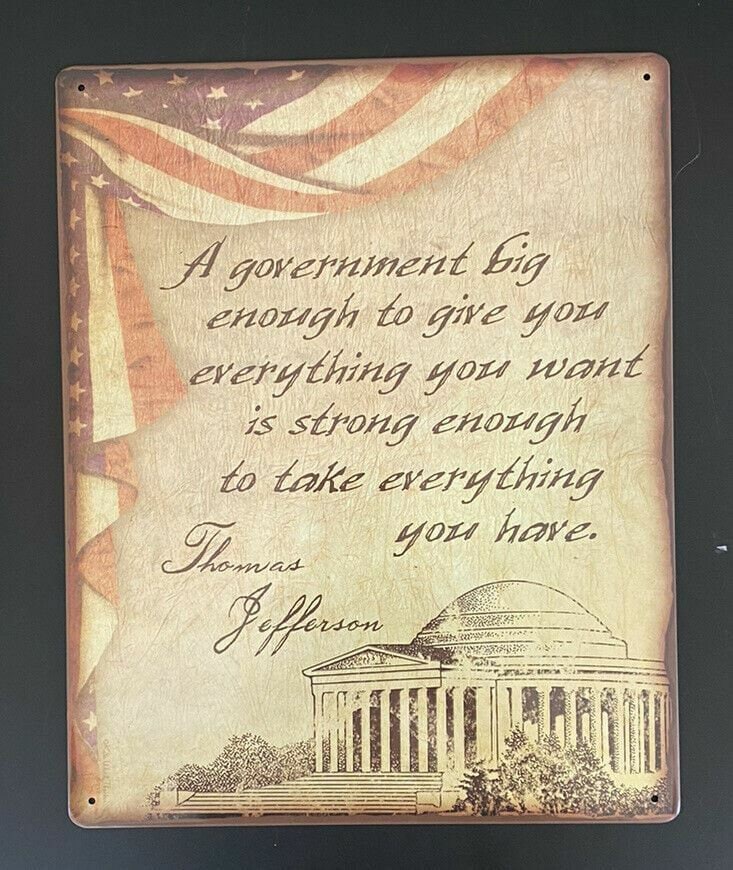 A government big
enough to give you
everything you want
is strong enough
to take everything
you have.
Thomas
Jefferson